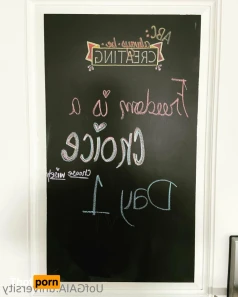 ABC:
always be
CREATING
Freedom is a
choice
choose wisely
Day 1
UofGAIA.university
porn